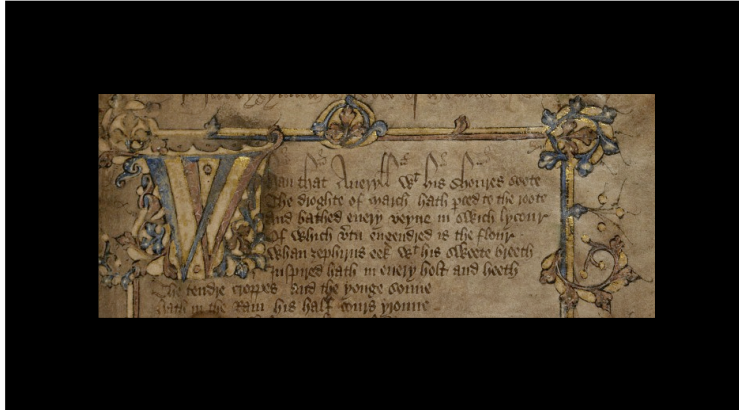 Whan that Aueryll wt his shoures soote
The droghte of march hath pced to the roote
And bathed euery veyne in swich lycour
Of which vtu engendred is the flour
Whan zephirus eek wt his sweete breeth
Inspired hath in euery holt and heeth
The tendre croppes and the yonge sonne
Hath in the Ram his half cours yronne